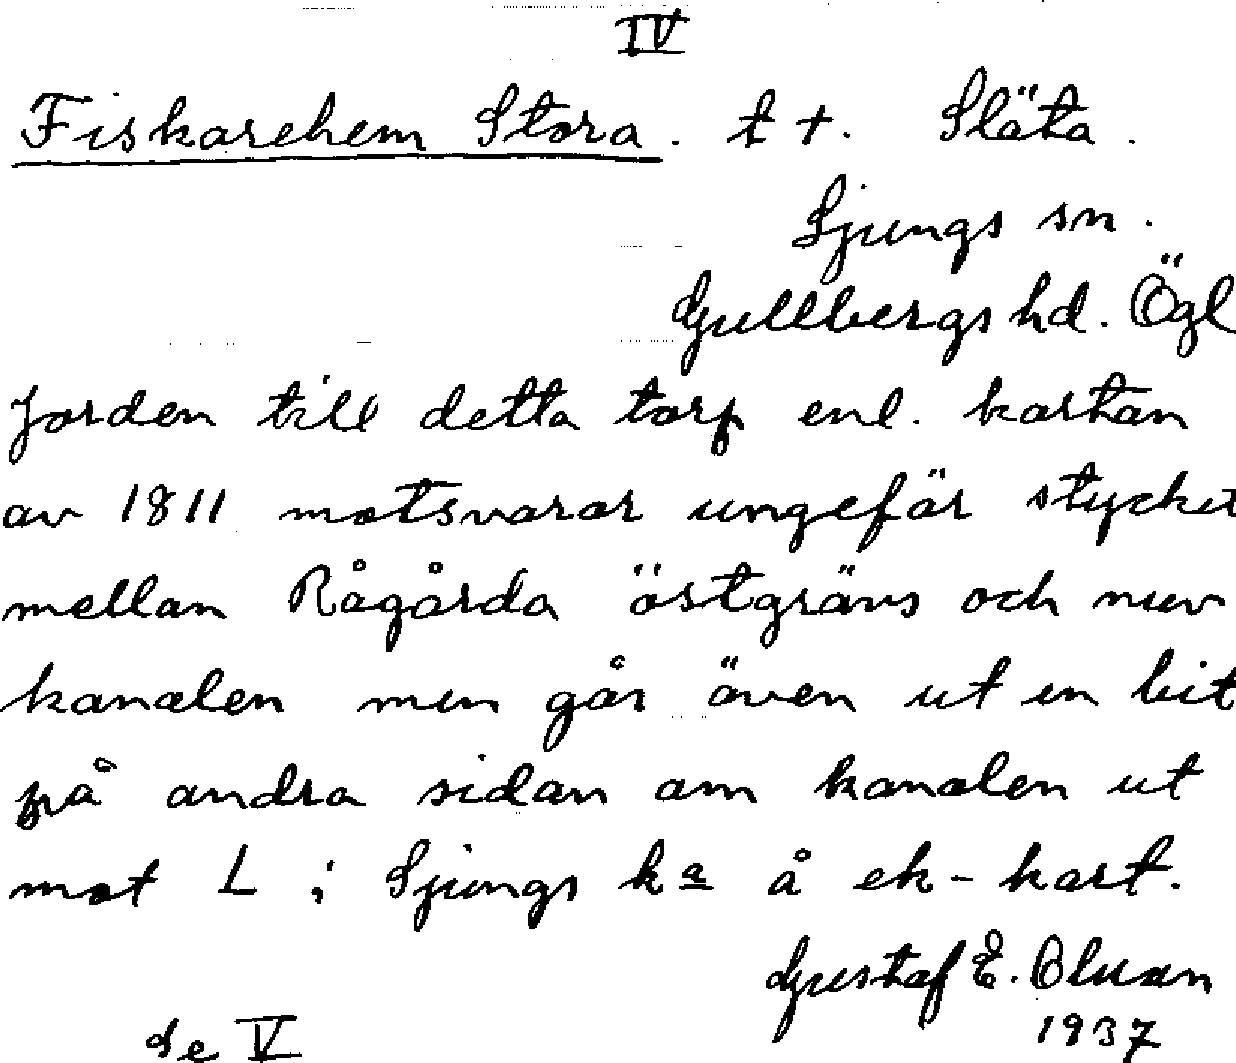 IV
Fiskarehem Stora. t +. Släta.
Ljungs sn.
Gullbergs hd. Ögl
Jorden till detta torp enl. kartan
av 1811 motsvarar ungefär stycket
mellan Rågårda östgräns och nuv
kanalen men går även ut en bit
på andra sidan om kanalen ut
mot L i Ljungs ka å ek-kart.
Gustaf E. Olsson
1937
Se V